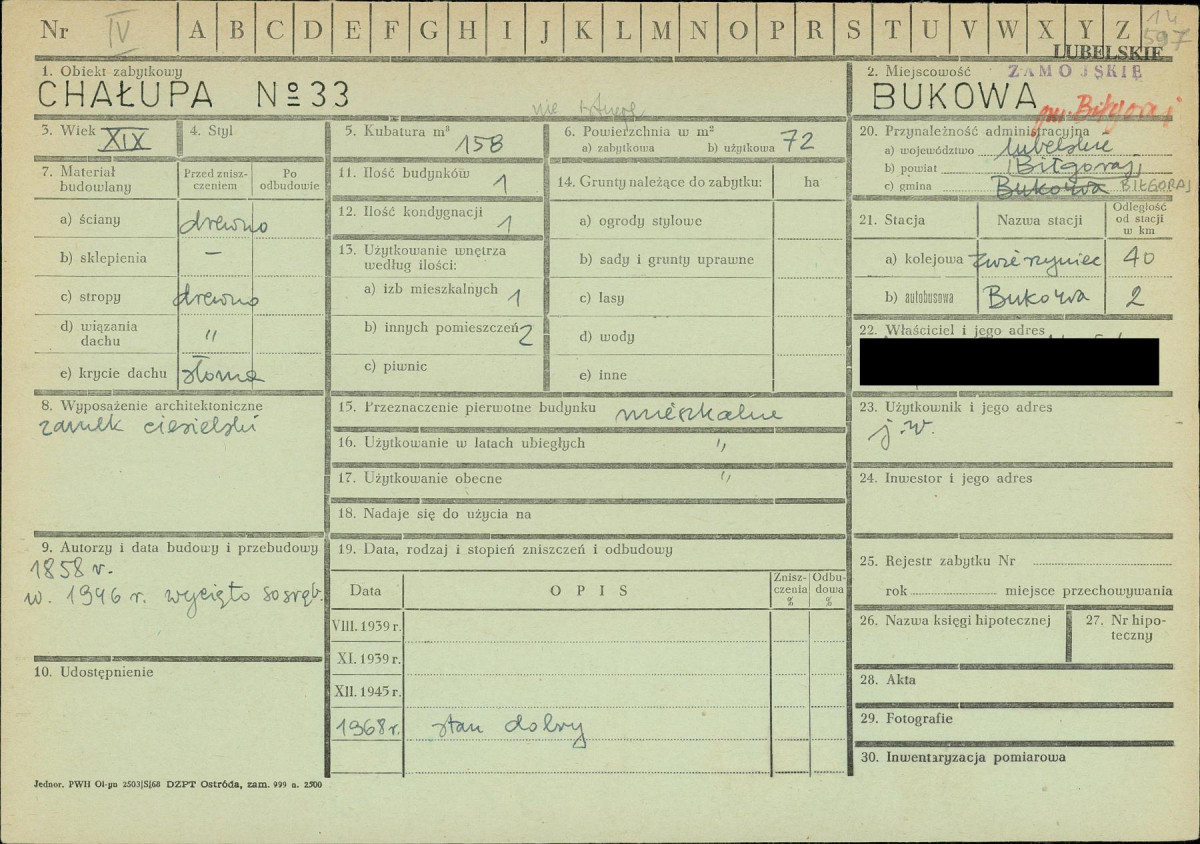 Nr IV A B C D E F G H I J K L M N O P R S T U V W X Y Z 14
597
LUBELSKIE
1. Obiekt zabytkowy
CHAŁUPA Nº 33
nie istnieje
2. Miejscowość ZAMOJSKIE
BUKOWA gm. Biłgoraj
3. Wiek XIX
4. Styl
5. Kubatura m³ 158
6. Powierzchnia w m²
a) zabytkowa b) użytkowa 72
7. Materiał budowlany
Przed zniszczeniem
Po odbudowie
a) ściany drewno
b) sklepienia –
c) stropy drewno
d) wiązania dachu "
e) krycie dachu słoma
8. Wyposażenie architektoniczne
zamek ciesielski
9. Autorzy i data budowy i przebudowy
1858 r.
w. 1946 r. wycięto sosręb.
10. Udostępnienie
11. Ilość budynków 1
12. Ilość kondygnacji 1
13. Użytkowanie wnętrza
według ilości:
a) izb mieszkalnych 1
b) innych pomieszczeń 2
c) piwnic
14. Grunty należące do zabytku: ha
a) ogrody stylowe
b) sady i grunty uprawne
c) lasy
d) wody
e) inne
15. Przeznaczenie pierwotne budynku mieszkalne
16. Użytkowanie w latach ubiegłych "
17. Użytkowanie obecne "
18. Nadaje się do użycia na
19. Data, rodzaj i stopień zniszczeń i odbudowy
Data OPIS Zniszczenia % Odbudowa %
VIII. 1939 r.
XI. 1939 r.
XII. 1945 r.
1968 r. stan dobry
20. Przynależność administracyjna
a) województwo lubelskie
b) powiat (Biłgoraj)
c) gmina Bukowa BIŁGORAJ
21. Stacja Nazwa stacji Odległość od stacji w km
a) kolejowa Zwierzyniec 40
b) autobusowa Bukowa 2
22. Właściciel i jego adres
23. Użytkownik i jego adres
j.w.
24. Inwestor i jego adres
25. Rejestr zabytku Nr
rok miejsce przechowywania
26. Nazwa księgi hipotecznej
27. Nr hipoteczny
28. Akta
29. Fotografie
30. Inwentaryzacja pomiarowa
Jednor. PWH Ol-yn 2503|S|68 DZPT Ostróda, zam. 999 n. 2500